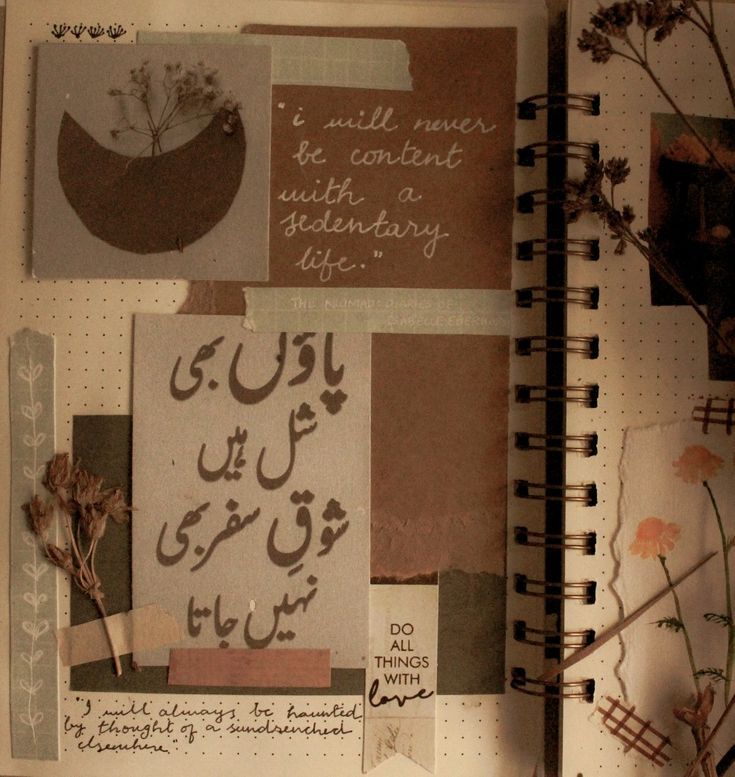 "i will never
be content
with a
sedentary
life."
THE NOMAD: DIARIES OF
ISABELLE EBERHARDT
پاؤں بھی
شل ہیں
شوقِ سفر بھی
نہیں جاتا
DO
ALL
THINGS
WITH
love
"I will always be haunted
by thought of a sundrenched
elsewhere"